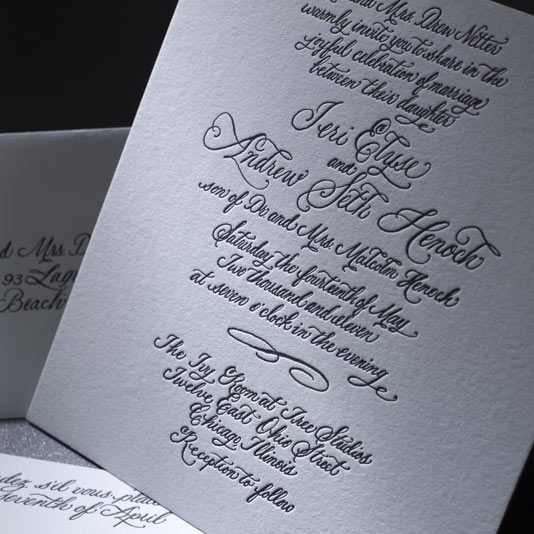 and Mrs. Drew Nitter
warmly invite you to share in the
joyful celebration of marriage
between their daughter
Jeri Elyse
and
Andrew Seth Henoch
son of Dr and Mrs Malcolm Henoch
Saturday the fourteenth of May
Two thousand and eleven
at seven o'clock in the evening
The Ivy Room at Tree Studios
Twelve East Ohio Street
Chicago Illinois
Reception to follow
d Mrs. D
93 Lagu
Beach
dez s'il vous plaît
seventh of April